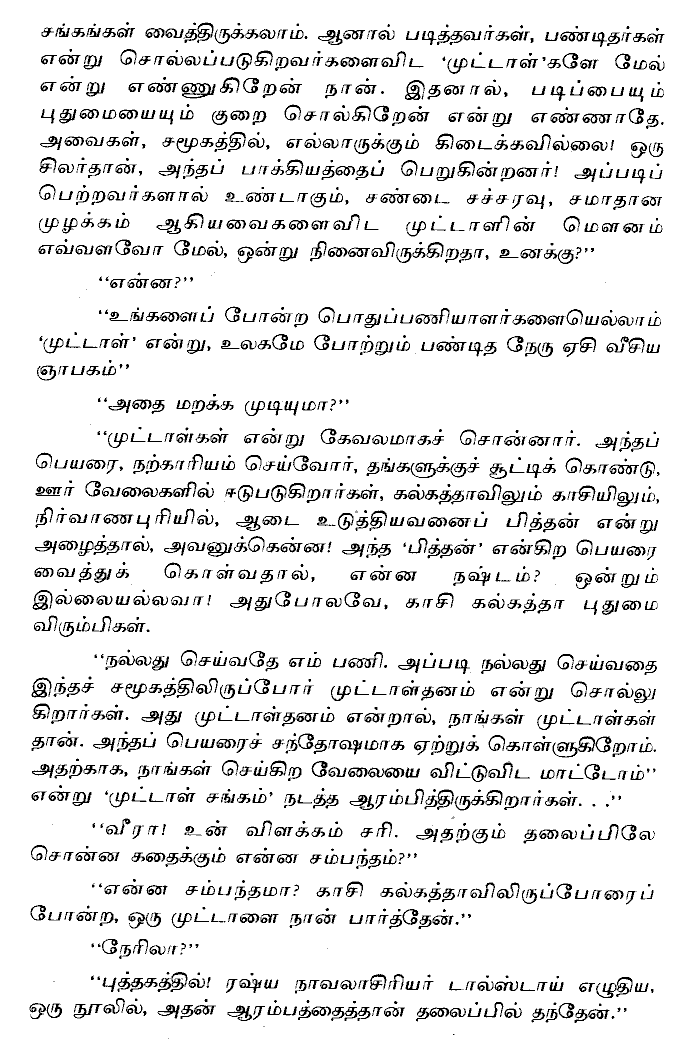 சங்கங்கள் வைத்திருக்கலாம். ஆனால் படித்தவர்கள், பண்டிதர்கள்
என்று சொல்லப்படுகிறவர்களைவிட ‘முட்டாள்’களே மேல்
என்று எண்ணுகிறேன் நான். இதனால், படிப்பையும்
புதுமையையும் குறை சொல்கிறேன் என்று எண்ணாதே.
அவைகள், சமூகத்தில், எல்லாருக்கும் கிடைக்கவில்லை! ஒரு
சிலர்தான், அந்தப் பாக்கியத்தைப் பெறுகின்றனர்! அப்படிப்
பெற்றவர்களால் உண்டாகும், சண்டை சச்சரவு, சமாதான
முழக்கம் ஆகியவைகளைவிட முட்டாளின் மௌனம்
எவ்வளவோ மேல், ஒன்று நினைவிருக்கிறதா, உனக்கு?’’
‘‘என்ன?’’
‘‘உங்களைப் போன்ற பொதுப்பணியாளர்களையெல்லாம்
‘முட்டாள்’ என்று, உலகமே போற்றும் பண்டித நேரு ஏசி வீசிய
ஞாபகம்’’
‘‘அதை மறக்க முடியுமா?’’
‘‘முட்டாள்கள் என்று கேவலமாகச் சொன்னார். அந்தப்
பெயரை, நற்காரியம் செய்வோர், தங்களுக்குச் சூட்டிக் கொண்டு,
ஊர் வேலைகளில் ஈடுபடுகிறார்கள், கல்கத்தாவிலும் காசியிலும்,
நிர்வாணபுரியில், ஆடை உடுத்தியவனைப் பித்தன் என்று
அழைத்தால், அவனுக்கென்ன! அந்த ‘பித்தன்’ என்கிற பெயரை
வைத்துக் கொள்வதால், என்ன நஷ்டம்? ஒன்றும்
இல்லையல்லவா! அதுபோலவே, காசி கல்கத்தா புதுமை
விரும்பிகள்.
‘‘நல்லது செய்வதே எம் பணி. அப்படி நல்லது செய்வதை
இந்தச் சமூகத்திலிருப்போர் முட்டாள்தனம் என்று சொல்லு
கிறார்கள். அது முட்டாள்தனம் என்றால், நாங்கள் முட்டாள்கள்
தான். அந்தப் பெயரைச் சந்தோஷமாக ஏற்றுக் கொள்ளுகிறோம்.
அதற்காக, நாங்கள் செய்கிற வேலையை விட்டுவிட மாட்டோம்’’
என்று ‘முட்டாள் சங்கம்’ நடத்த ஆரம்பித்திருக்கிறார்கள். . .’’
‘‘வீரா! உன் விளக்கம் சரி. அதற்கும் தலைப்பிலே
சொன்ன கதைக்கும் என்ன சம்பந்தம்?’’
‘‘என்ன சம்பந்தமா? காசி கல்கத்தாவிலிருப்போரைப்
போன்ற, ஒரு முட்டாளை நான் பார்த்தேன்.’’
‘‘நேரிலா?’’
‘‘புத்தகத்தில்! ரஷ்ய நாவலாசிரியர் டால்ஸ்டாய் எழுதிய,
ஒரு நூலில், அதன் ஆரம்பத்தைத்தான் தலைப்பில் தந்தேன்.’’